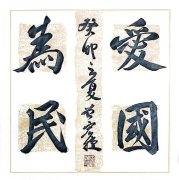 愛國
為民
癸卯之夏